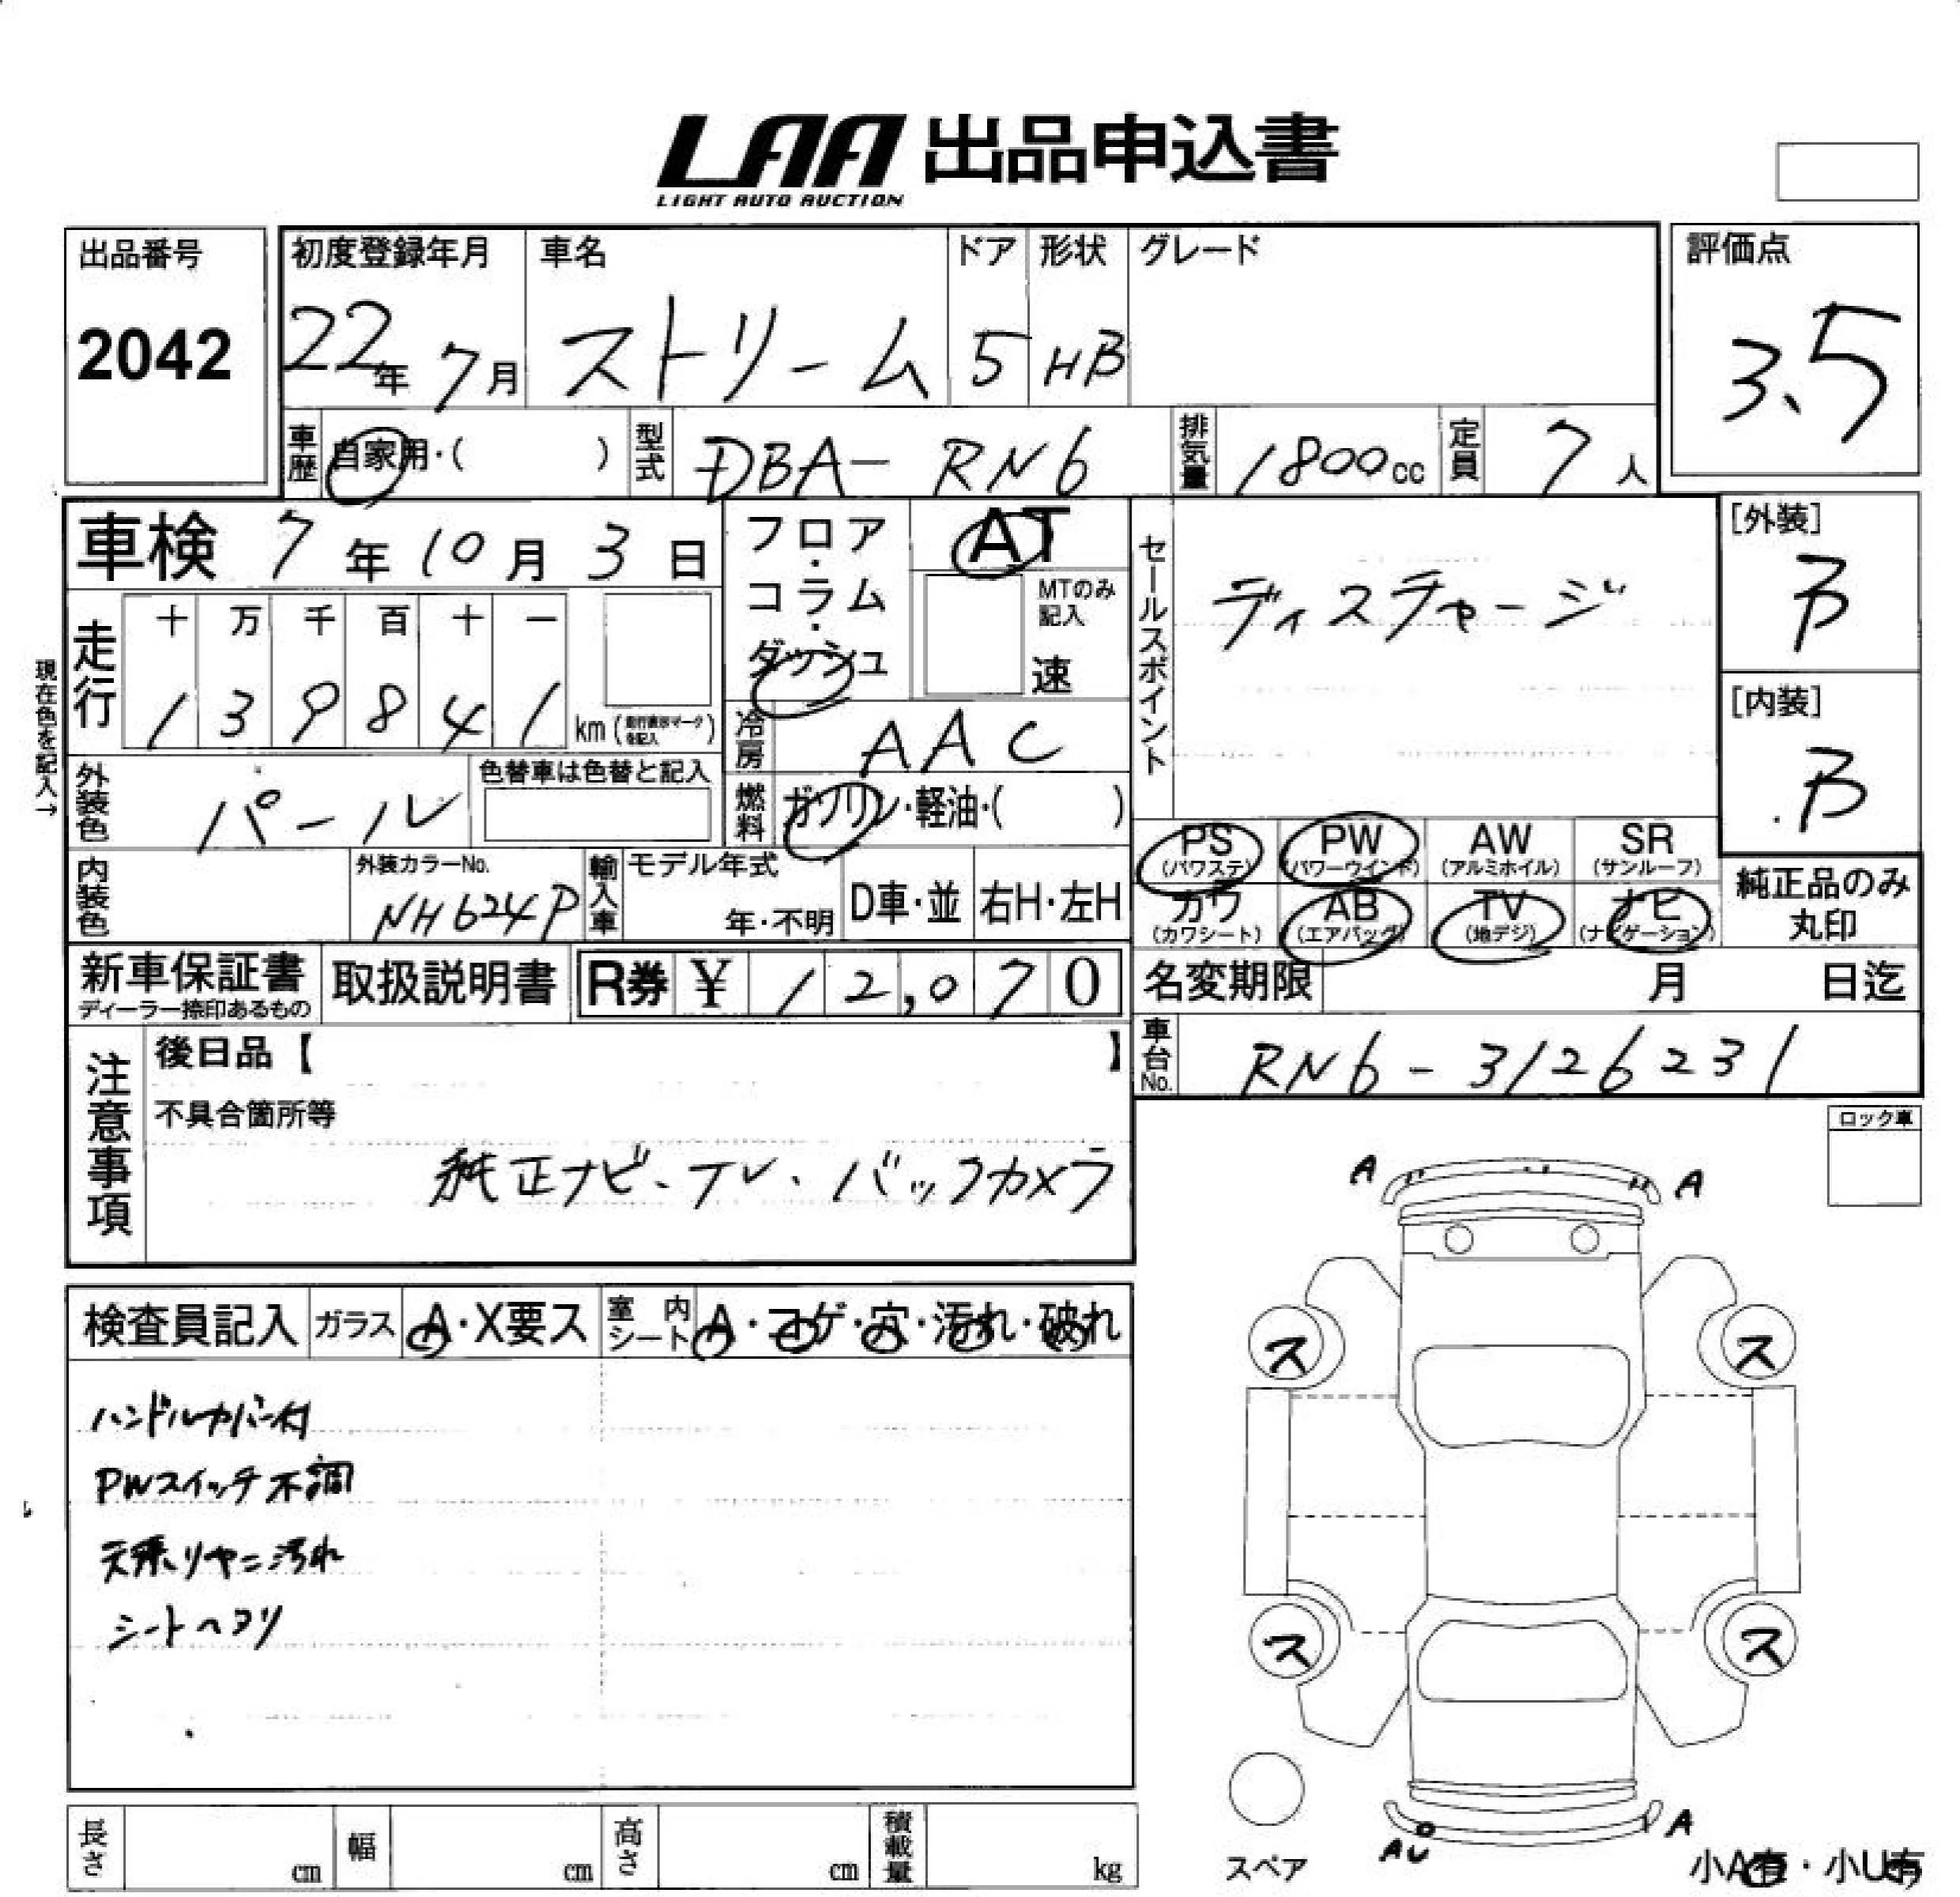 LAA 出品申込書
LIGHT AUTO AUCTION
出品番号
2042
初度登録年月
22年 7月
車名
ストリーム
ドア
5
形状
HB
グレード
評価点
3.5
車歴
自家用・( )
型式
DBA-RN6
排気量
1800cc
定員
7人
車検 7年10月3日
フロア・コラム・ダッシュ
AT
MTのみ記入
速
セールスポイント
ディスチャージ
[外装]
B
[内装]
B
現在色を記入→
走行
十 万 千 百 十 一
1 3 9 8 4 1
km(走行表示マークを記入)
冷房
AAC
外装色
パール
色替車は色替と記入
燃料
ガソリン・軽油・( )
PS
(パワステ)
PW
(パワーウインド)
AW
(アルミホイル)
SR
(サンルーフ)
カワ
(カワシート)
AB
(エアバッグ)
TV
(地デジ)
ナビ
(ナビゲーション)
純正品のみ
丸印
内装色
外装カラーNo.
NH624P
輸入車
モデル年式
年・不明
D車・並
右H・左H
新車保証書
ディーラー捺印あるもの
取扱説明書
R券 ¥ 12,070
名変期限 月 日迄
車台No.
RN6-3126231
注意事項
後日品【 】
不具合箇所等
純正ナビ、TV、バックカメラ
ロック車
検査員記入
ガラス
A・X要ス
室内シート
A・コゲ・穴・汚れ・破れ
ハンドルカバー付
PWスイッチ不調
天張リヤニ汚れ
シートヘタリ
A A
ス ス
ス ス
スペア
AU A
小A有・小U有
長さ cm
幅 cm
高さ cm
積載量 kg